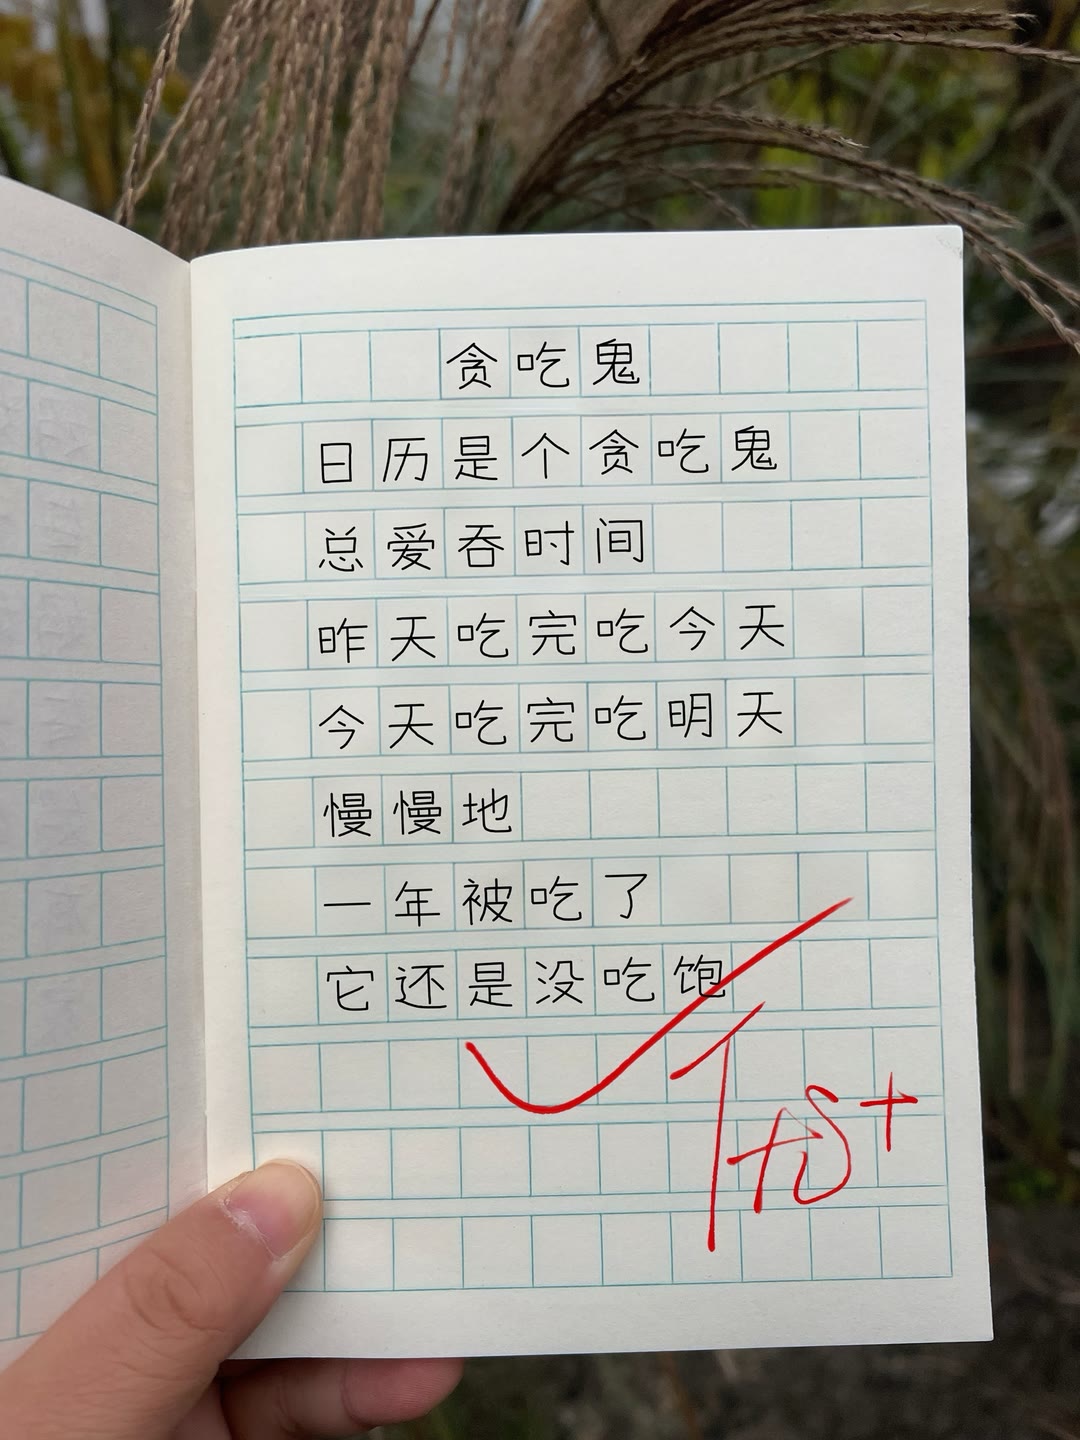 贪吃鬼
日历是个贪吃鬼
总爱吞时间
昨天吃完吃今天
今天吃完吃明天
慢慢地
一年被吃了
它还是没吃饱
优+